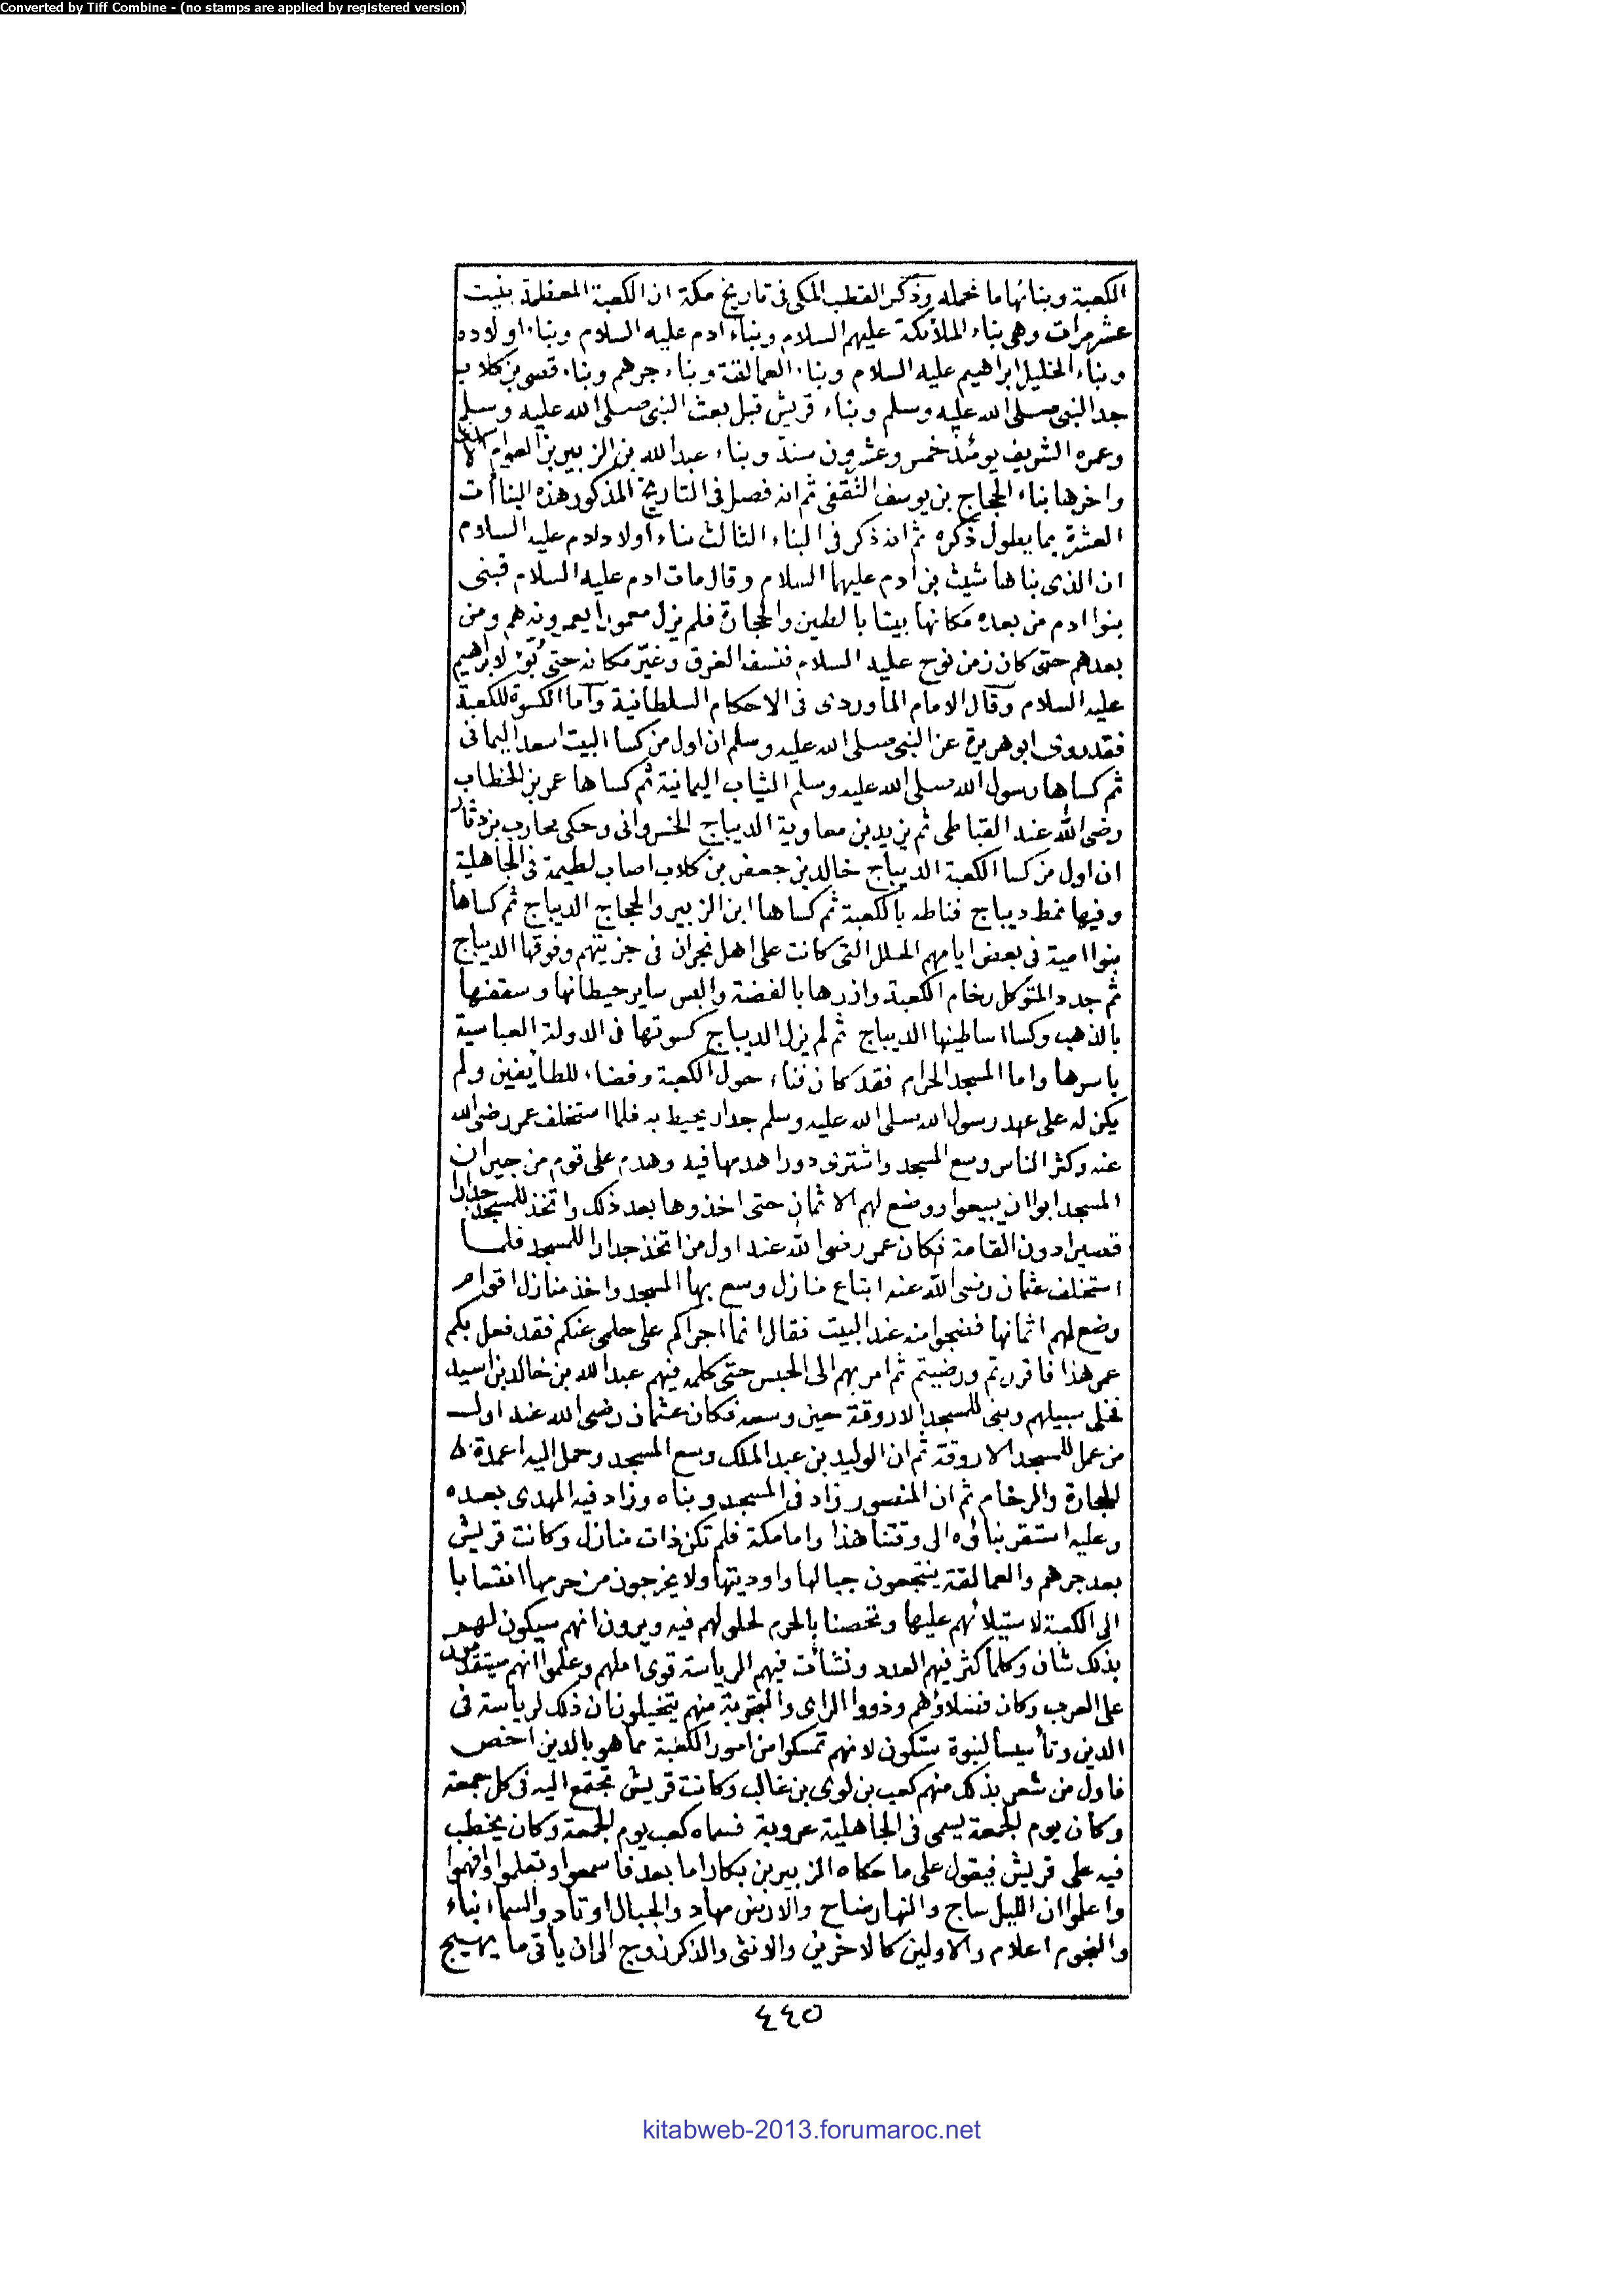 Converted by Tiff Combine - (no stamps are applied by registered version)
الكعبة وبنائها ما نحمله وذكر القطب المكى فى تاريخ مكة ان الكعبة المعظمة بنيت
عشر مرات وهى بناء الملائكة عليهم السلام وبناء ادم عليه السلام وبناء اولاده
وبناء الخليل ابراهيم عليه السلام وبناء العمالقة وبناء جرهم وبناء قصى بن كلاب
جد النبى صلى الله عليه وسلم وبناء قريش قبل بعث النبى صلى الله عليه وسلم
وعمره الشريف يومئذ خمس وعشرون سنة وبناء عبد الله بن الزبير بن العوام
واخرها بناء الحجاج بن يوسف الثقفى ثم انه فصل فى التاريخ المذكور هذه البناآت
العشرة بما يطول ذكره ثم انه ذكر فى البناء الثالث بناء اولاد ادم عليه السلام
ان الذى بناها شيث بن ادم عليهما السلام وقال مات ادم عليه السلام فبنى
بنوا ادم من بعده مكانها بيتا بالطين والحجارة فلم يزل معمورا يعمرونه هم ومن
بعدهم حتى كان زمن نوح عليه السلام فنسفه الغرق وغيّر مكانه حتى بُوّئ لابراهيم
عليه السلام وقال الامام الماوردى فى الاحكام السلطانية واما الكسوة للكعبة
فقد روى ابو هريرة عن النبى صلى الله عليه وسلم ان اول من كسا البيت اسعد اليمانى
ثم كساها رسول الله صلى الله عليه وسلم الثياب اليمانية ثم كساها عمر بن الخطاب
رضى الله عنه القباطى ثم يزيد بن معاوية الديباج الخسروانى وحكى محارب بن دثار
ان اول من كسا الكعبة الديباج خالد بن جعفر بن كلاب اصاب لطيمة فى الجاهلية
وفيها نمط ديباج فناطه بالكعبة ثم كساها ابن الزبير والحجاج الديباج ثم كساها
بنوا امية فى بعض ايامهم الحلل التى كانت على اهل نجران فى جزيتهم وفوقها الديباج
ثم جدد المتوكل رخام الكعبة وازرها بالفضة والبس ساير حيطانها وسقفها
بالذهب وكسا اساطينها الديباج ثم لم يزل الديباج كسوتها فى الدولة العباسية
باسرها واما المسجد الحرام فقد كان فناء حول الكعبة وفضاء للطائفين ولم
يكن له على عهد رسول الله صلى الله عليه وسلم جدار يحيط به فلما استخلف عمر رضى الله
عنه وكثر الناس وسع المسجد واشترى دورا هدمها فيه وهدم على قوم من جيران
المسجد ابوا ان يبيعوا ووضع لهم الاثمان حتى اخذوها بعد ذلك واتخذ للمسجد جدارا
قصيرا دون القامة فكان عمر رضى الله عنه اول من اتخذ جدارا للمسجد فلما
استخلف عثمان رضى الله عنه ابتاع منازل وسع بها المسجد واخذ منازل اقوام
وضع لهم اثمانها فضجوا منه عند البيت فقال انما اجراكم على حلمى عنكم فقد فعل بكم
عمر هذا فاقررتم ورضيتم ثم امر بهم الى الحبس حتى كلمه فيهم عبد الله بن خالد بن اسيد
فخلى سبيلهم وبنى للمسجد الاروقة حين وسعه فكان عثمان رضى الله عنه اول
من عمل للمسجد الاروقة ثم ان الوليد بن عبد الملك وسع المسجد وحمل اليه اعمدة
الحجارة والرخام ثم ان المنصور زاد فى المسجد وبناه وزاد فيه المهدى بعده
وعليه استقر بناؤه الى وقتنا هذا واما مكة فلم تكن ذات منازل وكانت قريش
بعد جرهم والعمالقة ينتجعون جبالها واوديتها ولا يخرجون من حرمها انتسابا
الى الكعبة لاستيلائهم عليها وتخصنا بالحرم لحلولهم فيه ويرون انهم سيكون لهم
بذلك شان وكلما كثر فيهم العدد ونشأت فيهم الرياسة قوى املهم وعلموا انهم سيتقدمون
على العرب وكان فضلاؤهم وذووا الراى والتجربة منهم يتخيلون ان ذلك لرياسة فى
الدين وتأسيسا لنبوة ستكون لانهم تمسكوا من امور الكعبة مما هو بالدين اخص
فاول من شعر بذلك منهم كعب بن لوى بن غالب وكانت قريش تجتمع اليه فى كل جمعة
وكان يوم الجمعة يسمى فى الجاهلية عروبة فسماه كعب يوم الجمعة وكان يخطب
فيه على قريش فيقول على ما حكاه الزبير بن بكار اما بعد فاسمعوا وتعلموا وافهموا
واعلموا ان الليل ساج والنهار ضاح والارض مهاد والجبال اوتاد والسماء بناء
والنجوم اعلام والاولين كالاخرين والانثى والذكر زوج الى ان ياتى ما يهيج
٤٤٥
kitabweb-2013.forumaroc.net